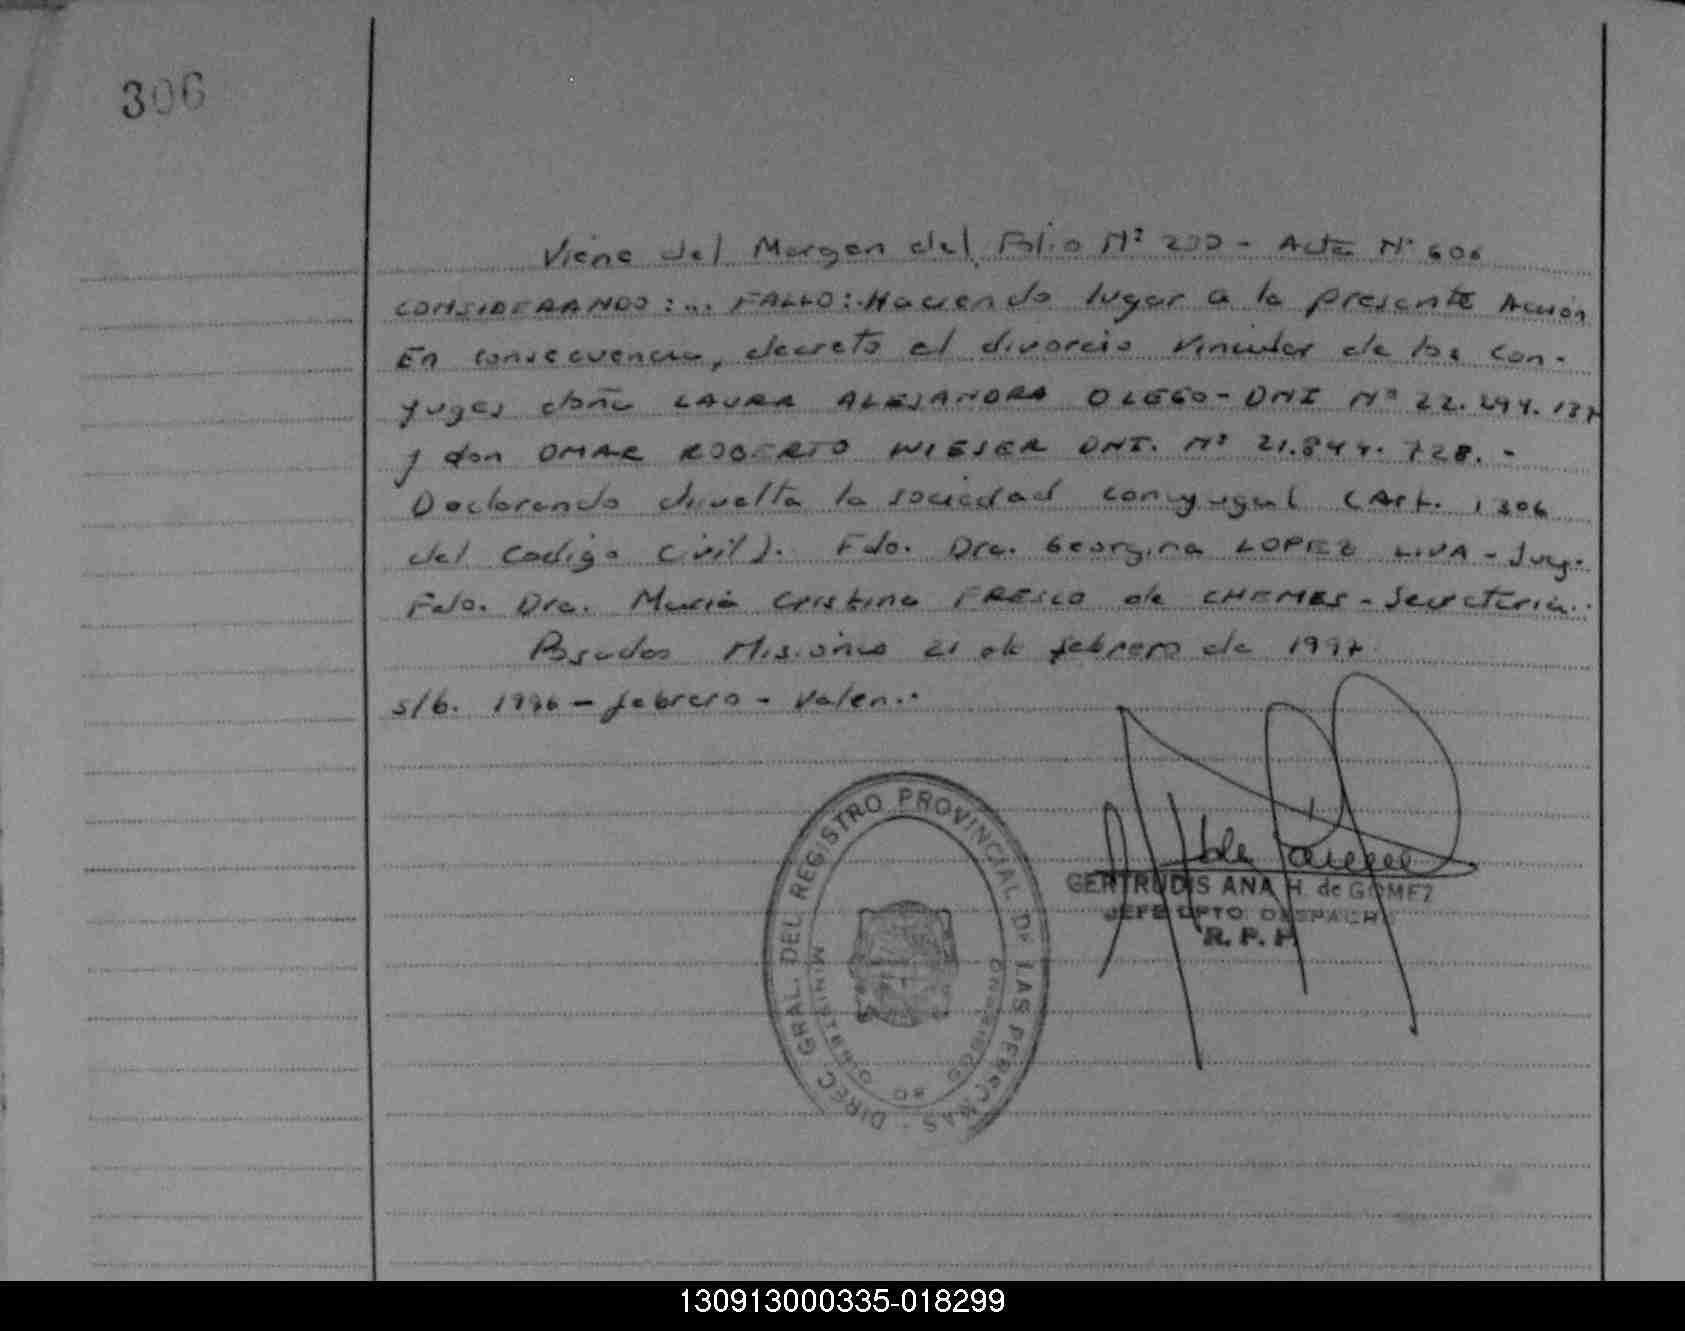 306
Viene del Margen del Folio Nº 200 - Acta Nº 606
CONSIDERANDO:... FALLO: Haciendo lugar a la presente Acción
En consecuencia, decreto el divorcio Vincular de los con-
yuges doña LAURA ALEJANDRA OLEGO - DNI Nº 22.294.137
y don OMAR ROBERTO WIESER DNI. Nº 21.844.728.-
Declarando disuelta la sociedad conyugal (Art. 1306
del Codigo Civil). Fdo. Dra. Georgina LOPEZ LIVA - Juez.
Fdo. Dra. Maria Cristina FRESCO de CHEMES - Secretaria.-
Posadas Misiones 21 de febrero de 1997
s/b. 1996 - febrero - Valen.-
DIREC. GRAL. DEL REGISTRO PROVINCIAL DE LAS PERSONAS -
MINISTERIO DE GOBIERNO
GERTRUDIS ANA H. de GOMEZ
JEFE DPTO. DESPACHO
R. P. P.
130913000335-018299